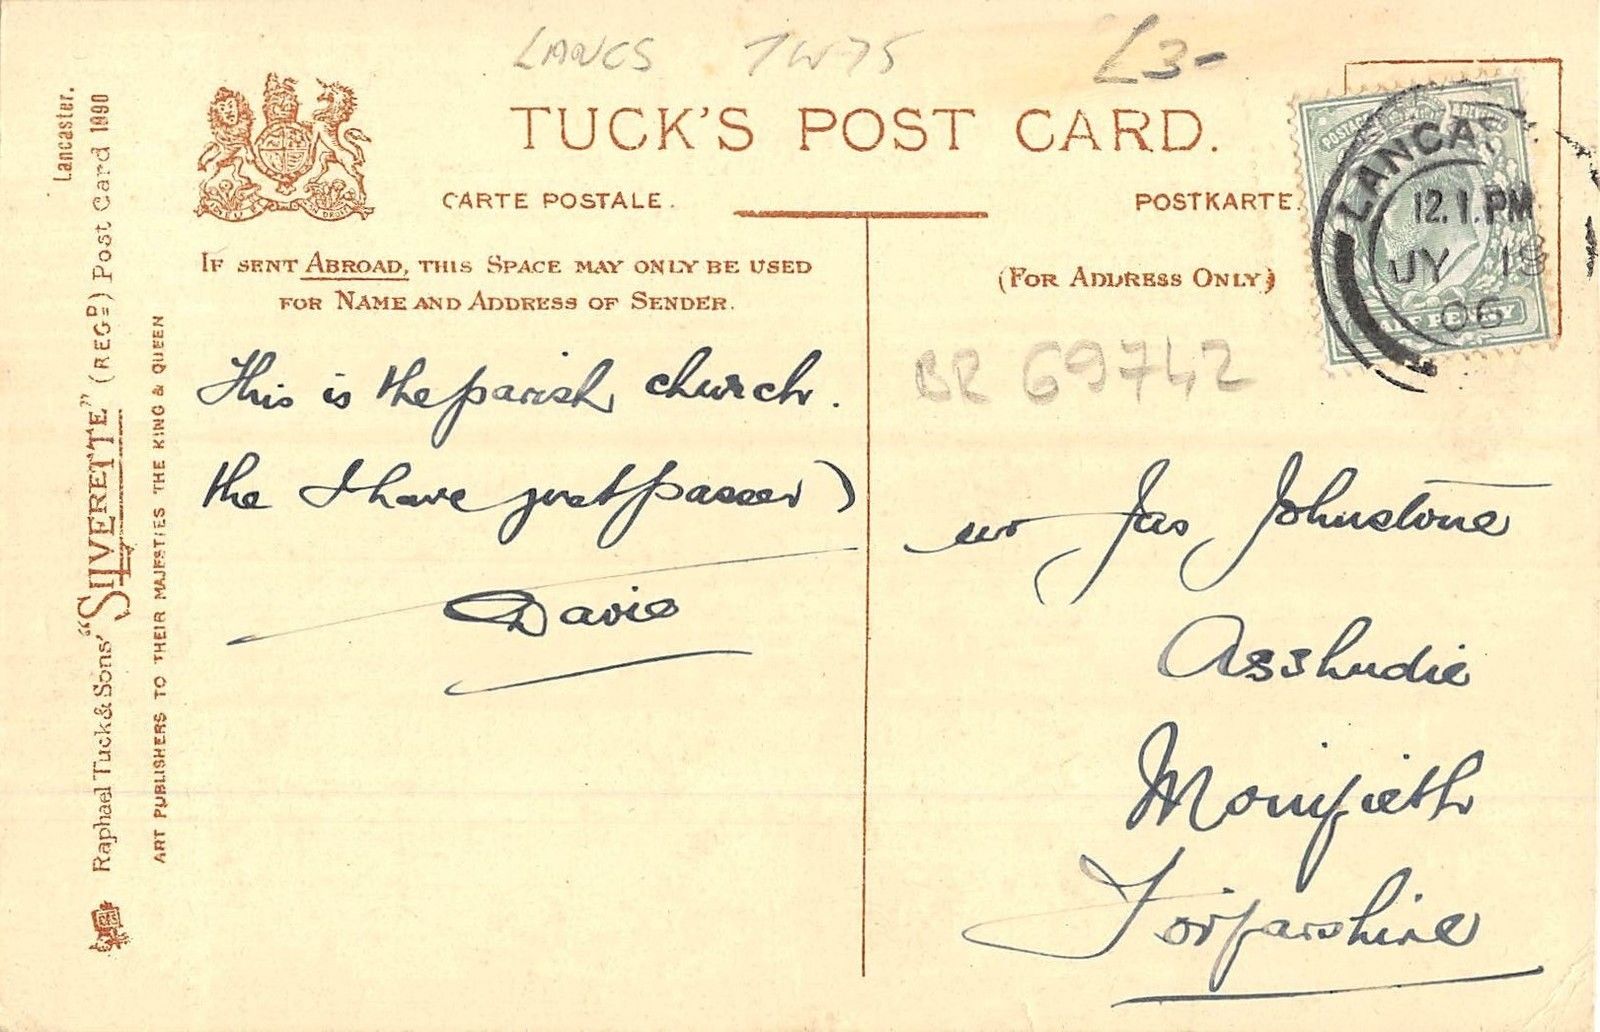 LANCS TW75 £3-
TUCK'S POST CARD.
CARTE POSTALE. POSTKARTE.
IF SENT ABROAD, THIS SPACE MAY ONLY BE USED
FOR NAME AND ADDRESS OF SENDER.
(FOR ADDRESS ONLY)
LANCAS
12.1.PM
JY 18
06
POSTAGE
HALF PENNY
BR 69742
This is the parish church.
the I have just passed
Davie
Jas Johnstone
Asshudie
Monifieth
Forfarshire
Lancaster.
Raphael Tuck & Sons' "SILVERETTE" (REGD) Post Card 1090
ART PUBLISHERS TO THEIR MAJESTIES THE KING & QUEEN